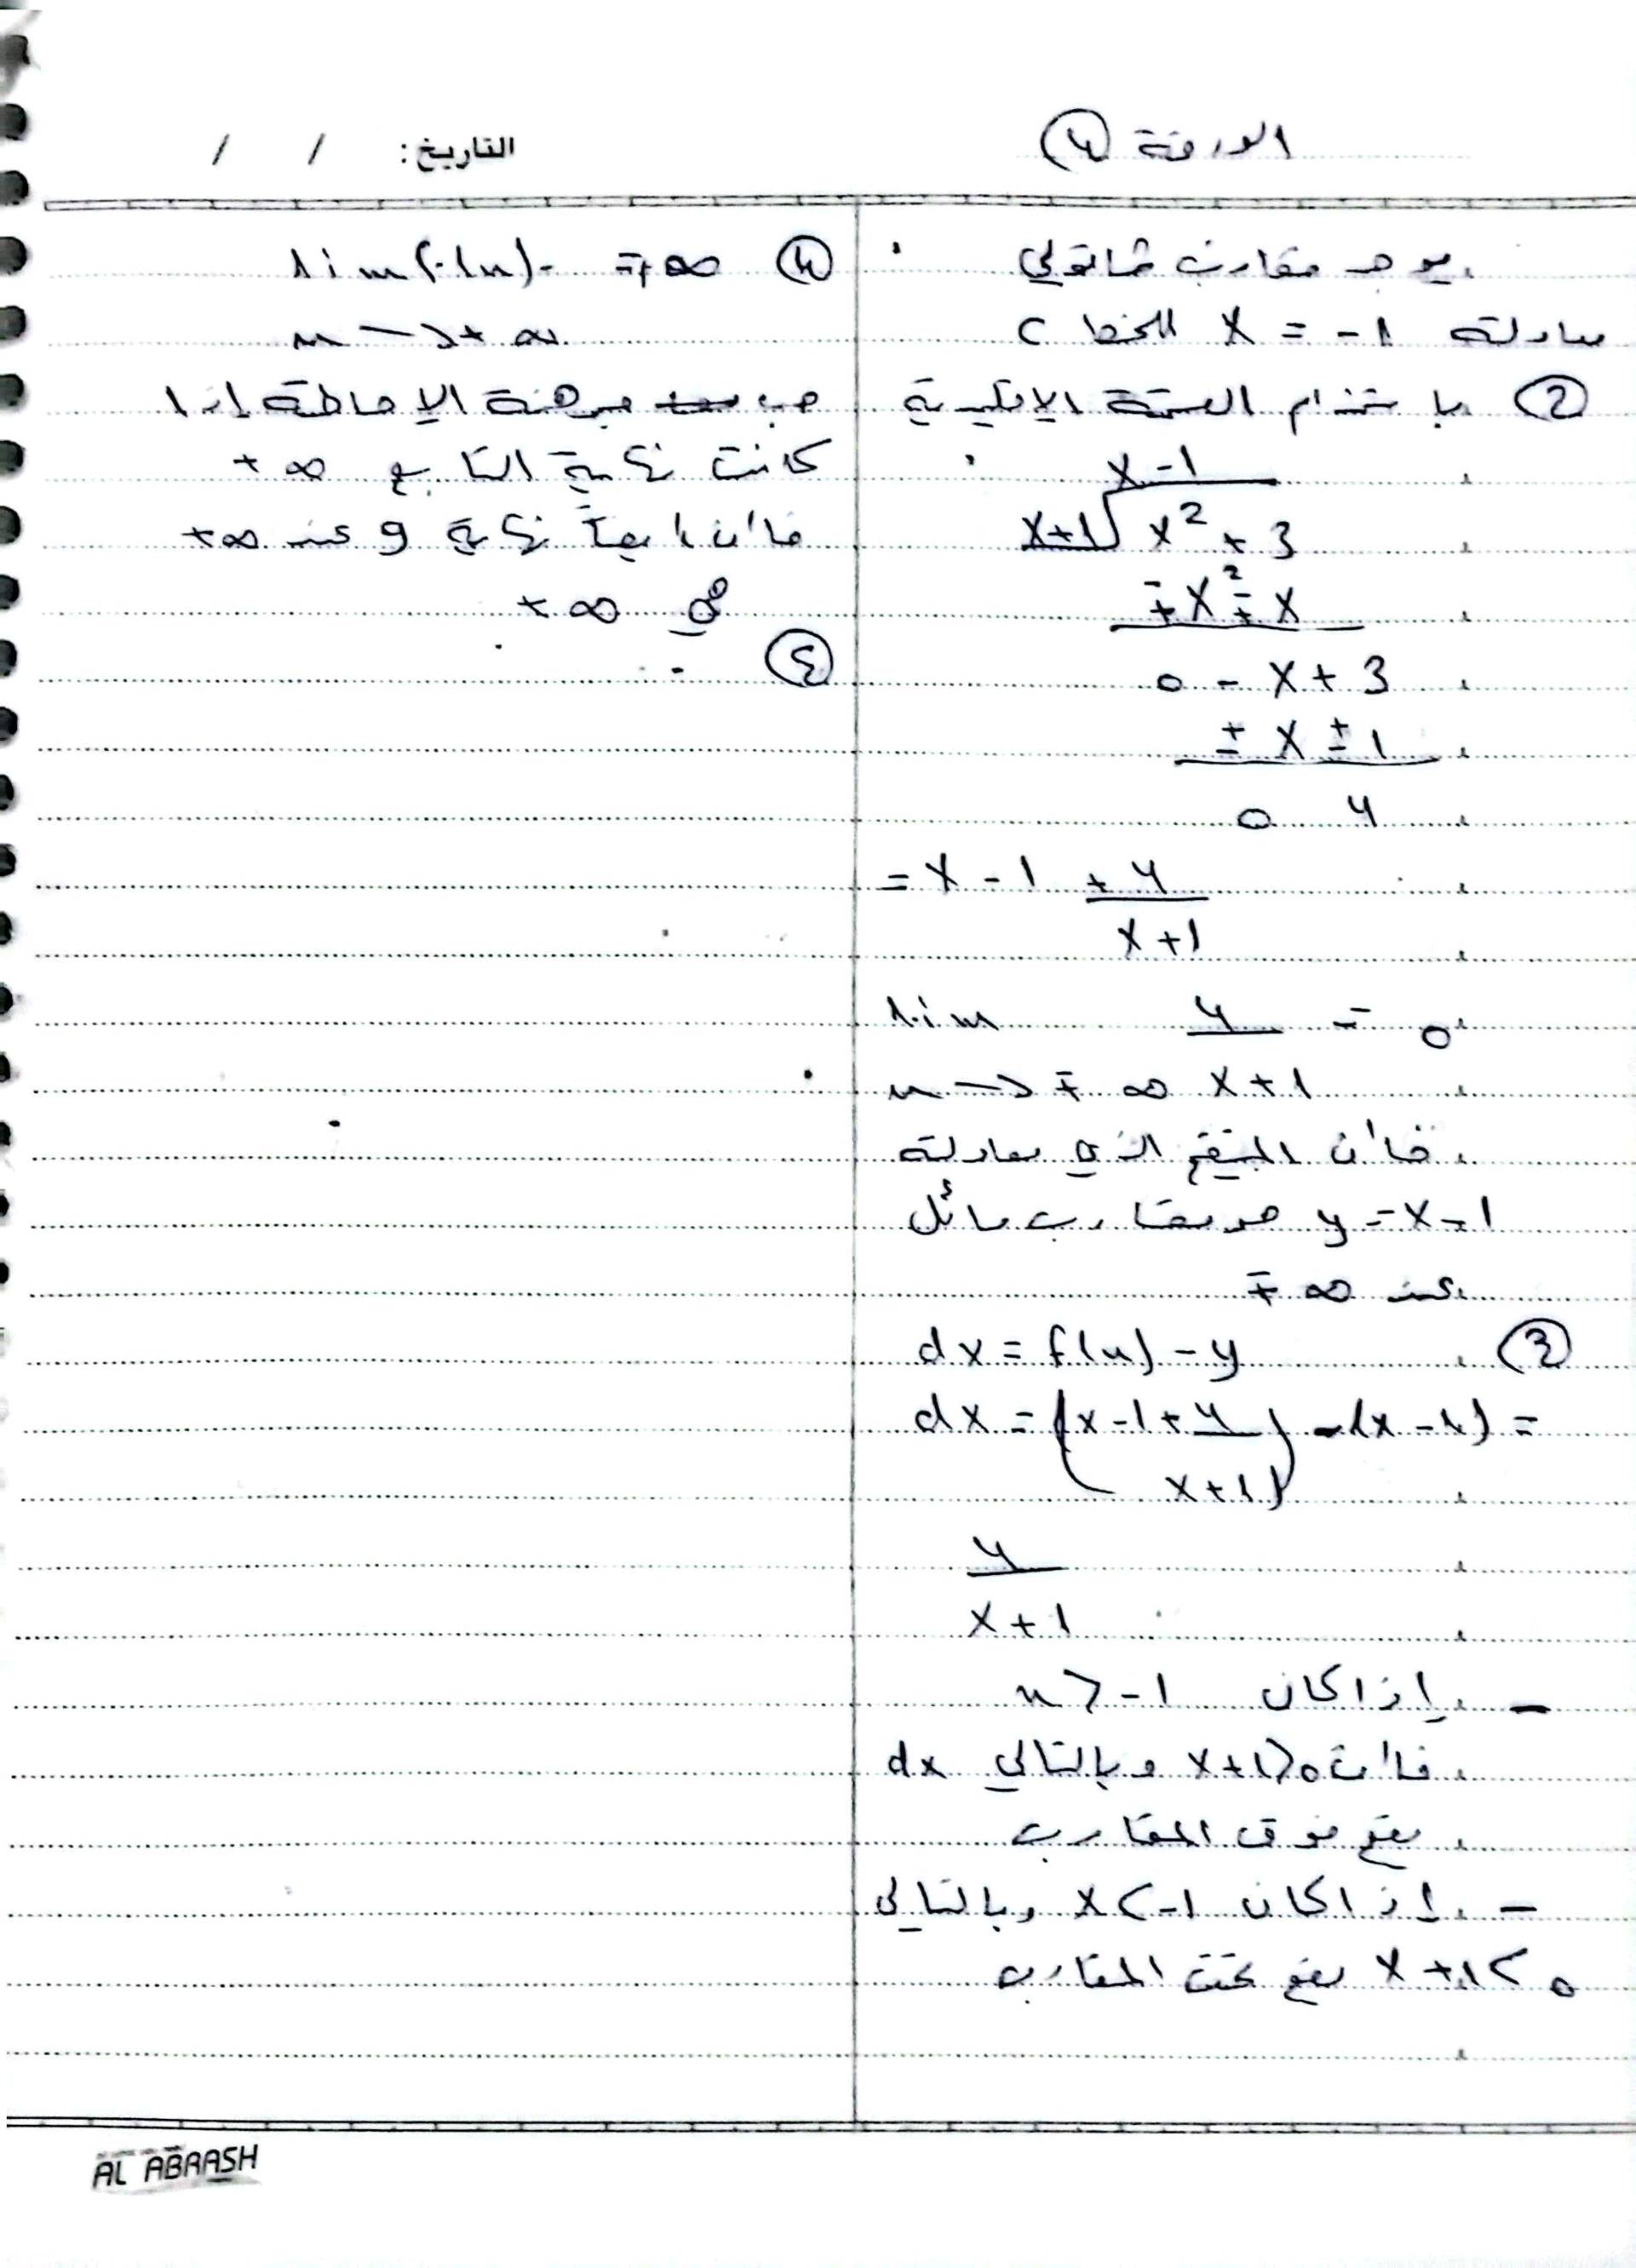 الورقة 4
التاريخ: / /
يوجد مقارب شاقولي
معادلته x = -1 للخط C
② باستخدام القسمة الاقليدية
x - 1
x+1 x² + 3
∓x² ∓ x
0 - x + 3
± x ± 1
0 4
= x - 1 + 4
x + 1
lim 4 = 0
x → ∓∞ x + 1
فأن المستقيم الذي معادلته
y = x - 1 هو مقارب مائل
عند ∓∞
③ dx = f(x) - y
dx = (x - 1 + 4) - (x - 1) =
x + 1
4
x + 1
- إذا كان x > -1
فأن x+1>0 وبالتالي dx
يقع فوق المقارب
- إذا كان x < -1 وبالتالي
x + 1 < 0 يقع تحت المقارب
④ lim
x → +∞
حسب مبرهنة الإحاطة إذا
كانت نهاية التابع +∞
فأن أيضاً نهاية g عند +∞
هي +∞
④
AL ABRASH